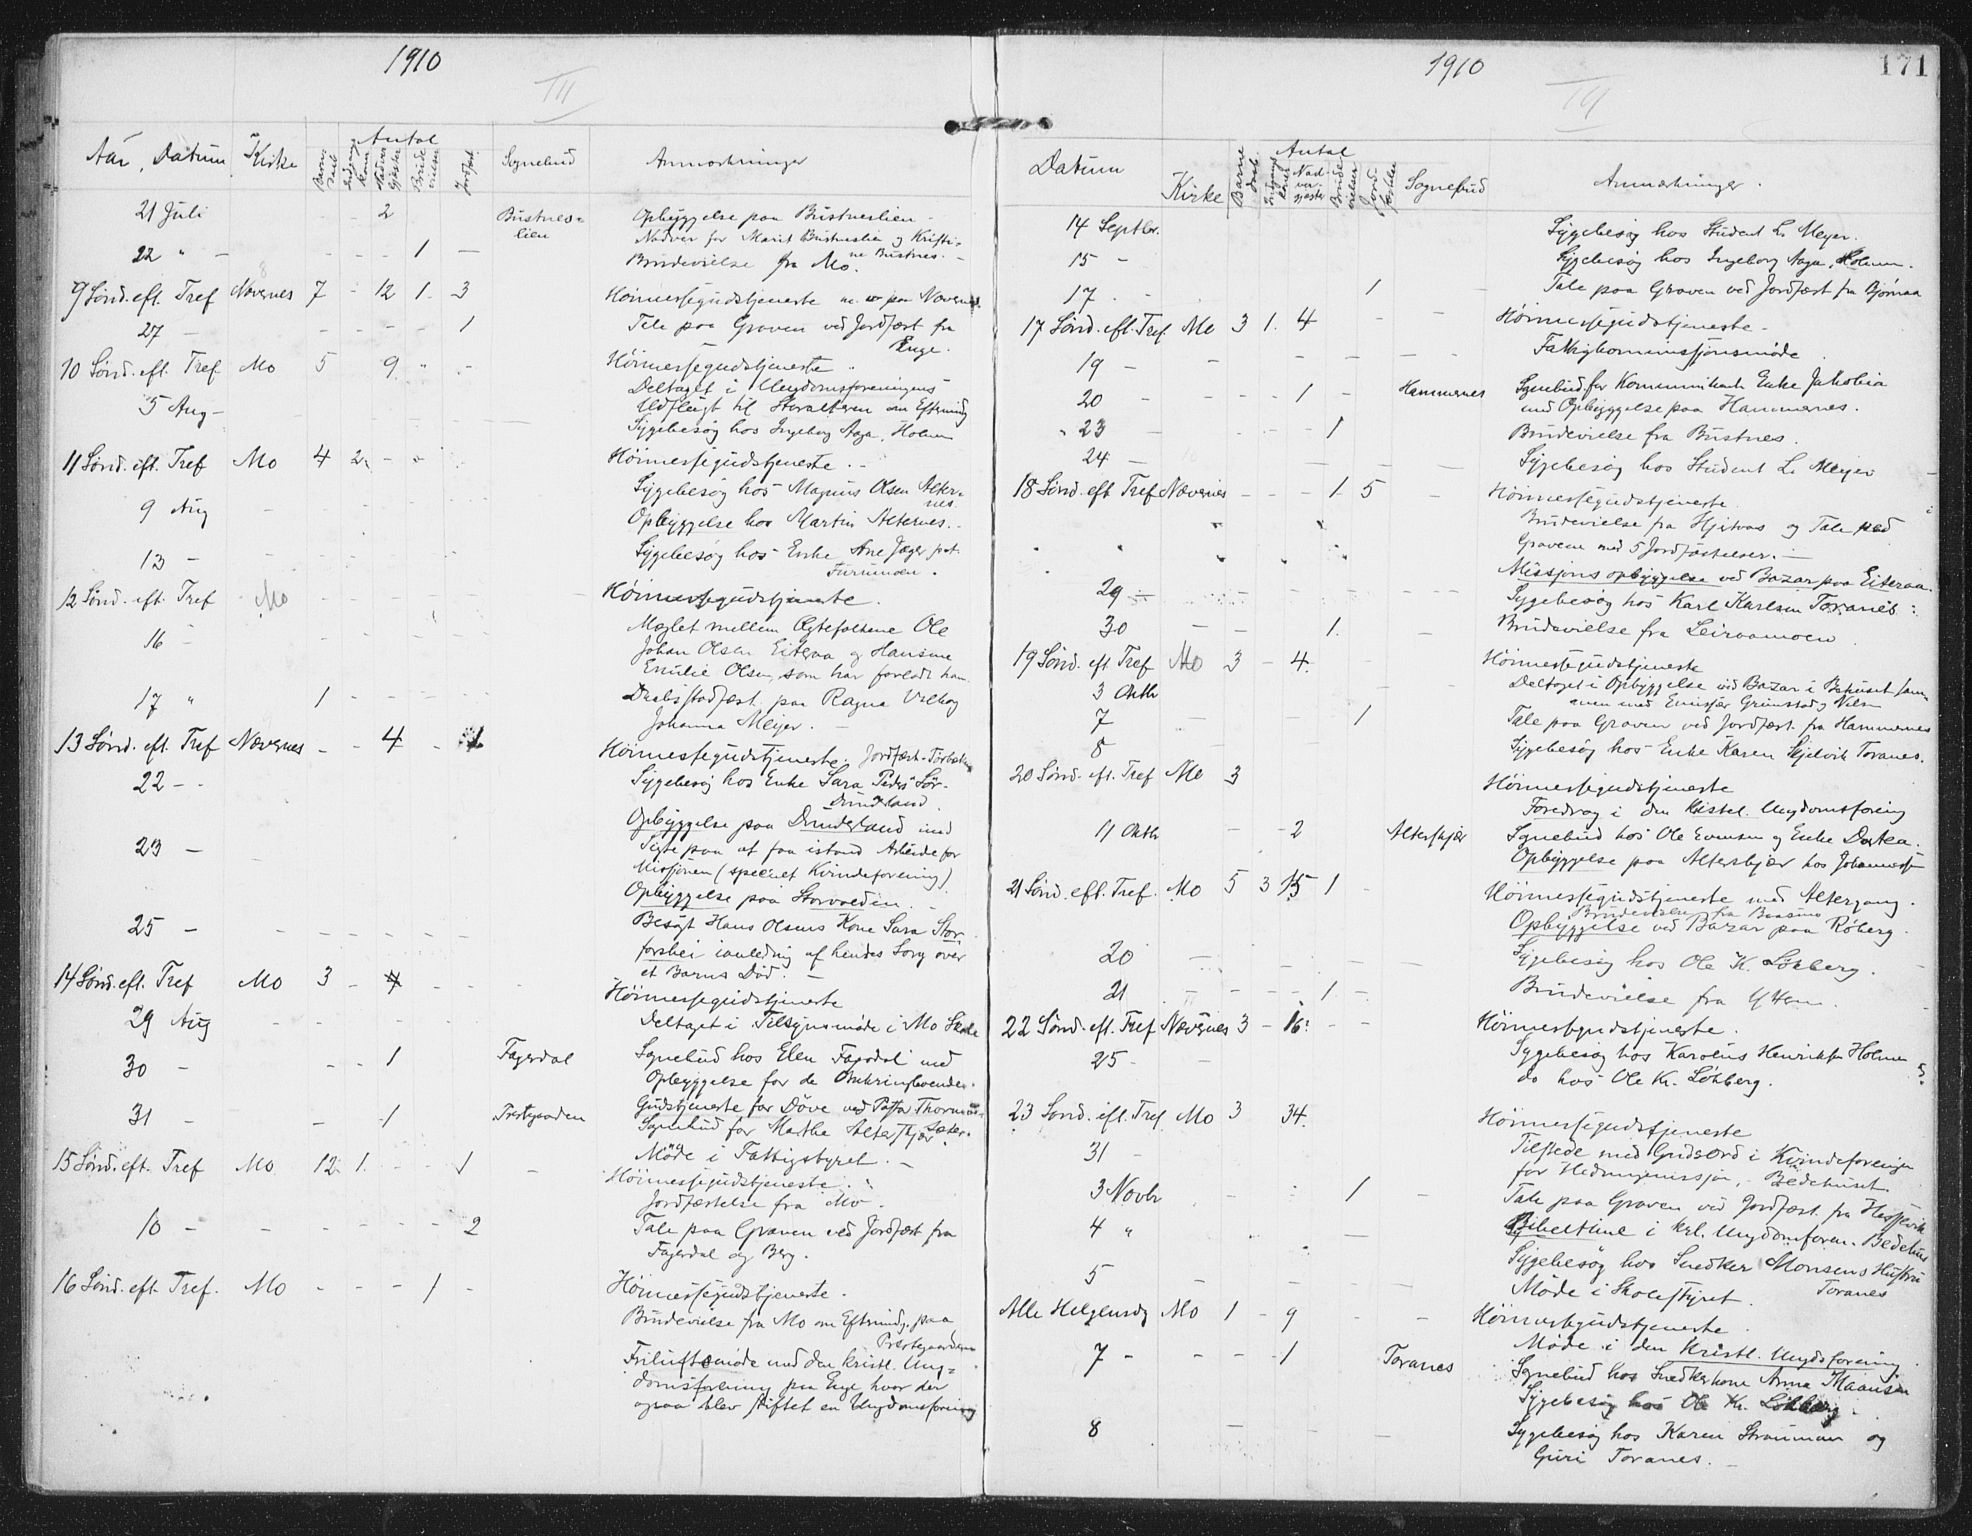 1910
III
Aar, Datum Kirke Antal Sognebud Anmærkninger
21 Juli 2 Bustnes= Opbyggelse paa Bustneslien -
lien Nadver for Marit Bustneslien og Kristi=
ne Bustnes. -
22 " - 1 Brudevielse fra Mo.
9 Sönd. eft. Tref Nævernes 7 - 12 1. 3 Höimessegudstjeneste
27 - 1 Tale paa Graven ved Jordfæst fra
Enge.
10 Sönd. eft. Tref Mo 5 9 Höimessegudstjeneste
Deltaget i Ungdomsforeningens
5 Aug - Udflugt til Storalteren om Eftermidg
Sygebesög hos Ingeborg Aaga, Holmen
11 Sönd. eft. Tref Mo 4 2 Höimessegudstjeneste. -
9 Aug Sygebesög hos Magnus Olsen Alter=
nes.
Opbyggelse hos Martin Alternes. -
13 - Sygebesög hos Enke Ane Jæger pat.
Furumoen.
12 Sönd. eft. Tref Mo Höimessegudstjeneste.
16 - Mæglet mellem Ægtefolkene Ole
Johan Olsen Eiteraa og Hansine
Emilie Olsen, som har forladt ham.
17 " 1 Daabsstadfæst. paa Ragna Valborg
Johanna Meyer. -
13 Sönd. eft. Tref Nævernes - - 4 - 1 Höimessegudstjeneste. Jordfæst.
22 - - Sygebesög hos Enke Sara Peders Sör-
Dunderland.
23 - Opbyggelse paa Dunderland med
Sigte paa at faa istand Arbeide for
Missjonen (specielt Kvindeforening)
Opbyggelse paa Storvolden. -
25 - Besögt Hans Olsens Kone Sara Stor-
forshei ianledning af hendes Sorg over
et Barns Död. -
14 Sönd. eft. Tref Mo 3 - 4 Höimessegudstjeneste
29 Aug Deltaget i Tilsynsmöde i Mo Skole
30 - 1 Fagerdal Sognebud hos Elen Fagerdal med
Opbyggelse for de Omkringboende.
31 - 1 Gudstjeneste for Döve ved Pastor
Sognebud for Martha Alterskjær
Möde i Fattigstyret. -
15 Sönd. eft. Tref Mo 12 1. 1 - Höimessegudstjeneste.
Jordfæstelse fra Mo.
10 - 2 Tale paa Graven ved Jordfæst fra
Fagerdal og Berg.
16 Sönd. eft. Tref. Mo - - - 1 - Höimessegudstjeneste.
Brudevielse fra Mo om Eftermidg. paa
Prestegaarden
Friluftsmöde med den kristl. Ung=
domsforening paa Enge hvor der
ogsaa blev stiftet en Ungdomsforening
1910 171
Datum Kirke Barne daab Antal Sognebud Anmærkninger.
14 Septbr. Sygebesög hos Student L. Meyer.
15 - Sygebesög hos Ingeborg Aaga, Holmen.
17 - 1 Tale paa Graven ved Jordfæst fra Bjørnaa
17 Sönd. eft. Tref Mo 3 1. 4 Höimessegudstjeneste -
19 - Fattigkommissjonsmöde.
20 - 1 - Hammernes Sognebud for Enke Jakobia
med Opbyggelse paa Hammernes.
23 - 1 Brudevielse fra Bustnes.
24 - Sygebesög hos Student L. Meyer
18 Sönd. eft Tref Nævernes - - - 1 5 - Höimessegudstjeneste.
Brudevielse fra og Tale ved
Graven med 5 Jordfæstelser. -
Missjonsopbyggelse ved Bazar paa Eiteraa.
29 - Sygebesög hos Karl Karlsen Toranes.
30 - - 1. - Brudevielse fra Leiraamoen
19 Sönd. eft Tref Mo 3 - 4. Höimessegudstjeneste
3 Oktb Deltaget i Opbyggelse ved Bazar i Behuset sam-
men med Emissær Grimstad og Nilsen
7 - 1 Tale paa Graven ved Jordfæst. fra Hammernes
8 Sygebesög hos Enke Karen Skjelvik Toranes.
20 Sönd. eft. Tref Mo 3 Höimessegudstjeneste
Foredrag i den kristel. Ungdomsforeing
11 Oktb - - 2 Alterskjær Sognebud hos Ole Evensen og Enke Dortea.
Opbyggelse paa Alterskjær hos
21 Sönd. eft. Tref. Mo 5 3 15 1 - Höimessegudstjeneste med Altergang.
Brudevielse fra
Opbyggelse ved Bazar paa Röberg.
20 - Sygebesög hos Ole K. Lökberg.
21 - 1 - Brudevielse fra Ytteren.
22 Sönd. eft. Tref Nævernes 3 - 16. - - Höimessegudstjeneste.
25 - Sygebesög hos Karolius Henriksen Holmen
do hos Ole Kr. Lökberg.
23 Sönd. eft. Tref Mo 3 34. Höimessegudstjeneste
31 - Tilstede med Gudsord i Kvindeforeningen
for Hedningemissjon, Bedehuset.
3 Novbr 1 - Tale paa Graven ved Jordfæst. fra
4 " - Bibeltime i krl. Ungdomforen. Bedehus
5 - Sygebesög hos Snedker Monsens Hustru
Toranes
Möde i Skolestyret.
Alle Helgensdg Mo 1 - 9 - - Höimessegudstjeneste.
7 - - - 1 Toranes Möde i den Kristl. Ungdsforening.
Sognebud hos Snedkerkone Anna
Sygebesög hos Ole Kr. Lökberg. -
8 - Sygebesög hos Karen Strauman og
Guri Toranes. -